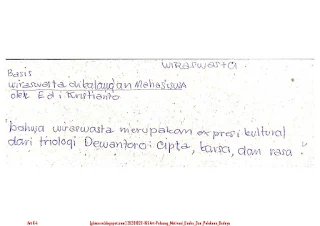 WIRASWASTA
Basis
wiraswasta dikalangan Mahasiswa
oleh Edi Kristianto
"bahwa wiraswasta merupakan expresi kultural
dari triologi Dewantoro: cipta, karsa, dan rasa."